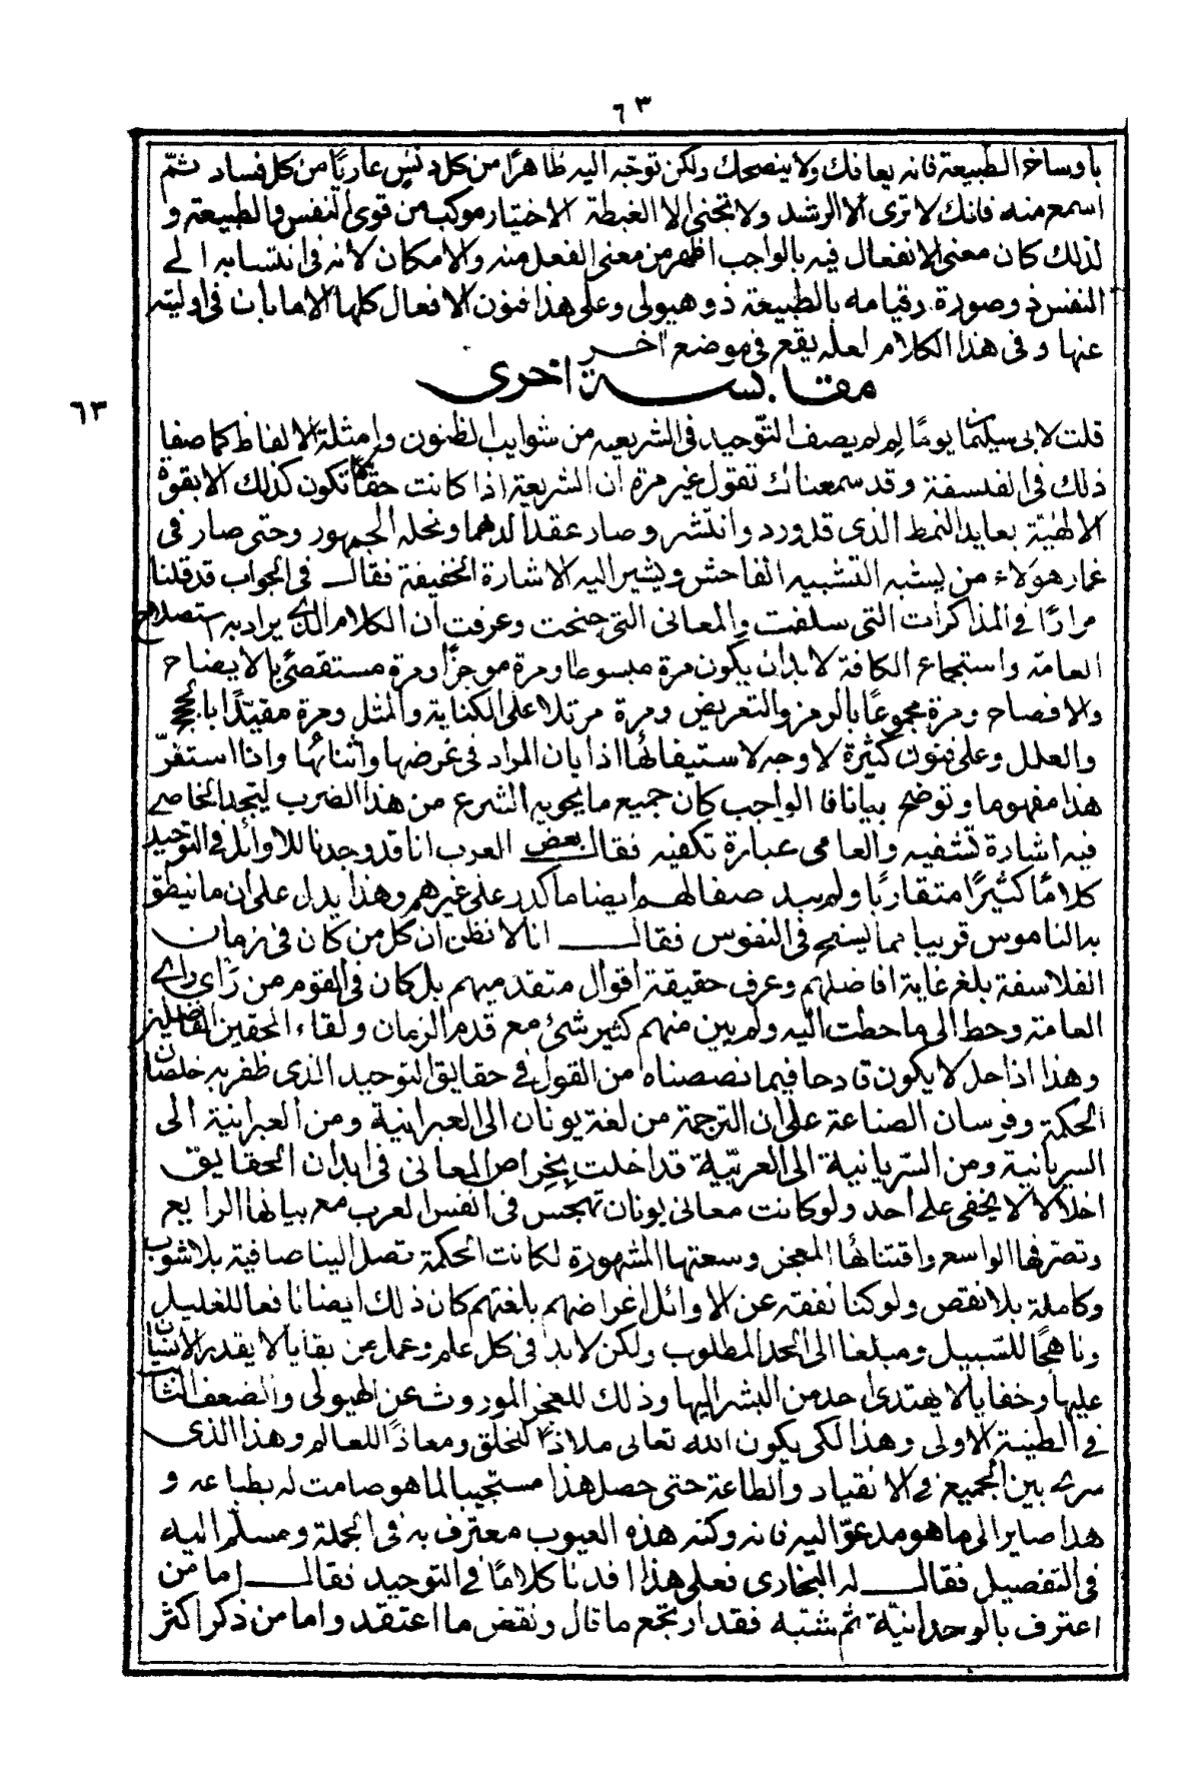 ٦٣
بأوساخ الطبيعة فانه يعافك ولا ينصحك ولكن توجّه اليه طاهرًا من كل دنس عاريًا من كل فساد ثمّ
اسمع منه فانك لا ترى الا الرشد ولا تجنى الا الغبطة الاختيار موكب من قوى النفس والطبيعة و
لذلك كان معنى الانفعال فيه بالواجب اظهر من معنى الفعل منه والامكان لانه فى انتسابه الے
النفس ذو صورة وقيامه بالطبيعة ذو هيولى وعلى هذا فنون الافعال كلها الا ما بان فى اوليته
عنها وفى هذا الكلام لعله يقع فى موضع اخر
مقابسة اخرى
٦٣
قلت لابى سليمان يومًا لِم لم يصف التّوحيد فى الشريعه من شوايب الظنون وامثلة الالفاظ كما صفا
ذلك فى الفلسفة وقد سمعناك تقول غير مرة ان الشريعة اذا كانت حقًا تكون كذلك الا بقوة
الاهيّة بعايد النمط الذى قد ورد وانتشر وصار عقد الدهما ونحله الجمهور وحتى صار فى
غمار هولاء من يشبه التشبيه الفاحش ويشير اليه الاشارة الخفيفة فقال فى الجواب قد قلنا
مرارًا فى المذاكرات التى سلفت والمعانى التى جنحت وعرفت ان الكلام الذى يراد به استصلاح
العامة واستجماع الكافة لا بد ان يكون مرة مبسوطا ومرة موجزًا ومرة مستقصى بالايضاح
والافصاح ومرة مجموعًا بالرمز والتعريض ومرة مرتلا على الكناية والمثل ومرة مقيّدًا بالحجج
والعلل وعلى فنون كثيرة لا وجه لاستيفائها اذا بان المراد فى غرضها واثنائها واذا استقرّ
هذا مفهوما وتوضح بيانا فا الواجب كان جميع ما يحويه الشرع من هذا الضرب ليتجد الخاصے
فيه اشارة تشفيه والعامى عبارة تكفيه فقال بعض العرب انا قد وجدنا للاوائل فى التوحيد
كلامًا كثيرًا متقاربًا ولم يبد صفا لهم ايضا ما كدر على غيرهم وهذا يدل على ان ما نيطق
به الناموس قريب مما يسنح فى النفوس فقال انا لا نظن ان كل من كان فى زمان
الفلاسفة بلغ غاية افاضلهم وعرف حقيقة اقوال متقدميهم بل كان فى القوم من رَاى راے
العامة وحط الى ما حطت اليه ولم يبن منهم كثير شئ مع قدم الزمان ولقاء المحقين الفاضلين
وهذا اذا حل لا يكون قادحا فيما نصصناه من القول فى حقايق التوحيد الذى ظفر به خلصان
الحكمة وفرسان الصناعة على ان الترجمة من لغة يونان الى العبرانية ومن العبرانية الى
السريانية ومن السّريانية الى العربيّة قد اخلت بخراص المعانى فى ابدان الحقايق
اخلالا لا يخفى على احد ولو كانت معانى يونان تهجس فى انفس العرب مع بيانها الرايع
وتصرفها الواسع واقتنائها المعجز وسعتها المشهورة لكانت الحكمة تصل الينا صافية بلا شوب
وكاملة بلا نقص ولو كنا نفقه عن الاوائل اغراضهم بلغتهم كان ذلك ايضا نافعا للغليل
وناهجًا للسّبيل ومبلغا الى الحد المطلوب ولكن لا بد فى كل علم وعمل من بقايا لا يقدر الانسان
عليها وخفايا لا يهتدى احد من البشر اليها وذلك للعجز الموروث عن الهيولى والضعف الثابت
فى الطينة الاولى وهذا لكى يكون الله تعالى ملاذًا للخلق ومعاذًا للعالم وهذا الذى
سرى بين الجميع فى الانقياد والطاعة حتى حصل هذا مستجيبا لما هو صامت له بطباعه و
هذا صاير الى ما هو مدعوّ اليه فانه وكنه هذه العيوب معترف به فى الجملة ومسلم اليه
فى التفصيل فقال له البخارى فعلى هذا افدنا كلامًا فى التوحيد فقال اما من
اعترف بالوحدانيّة ثم شبّه فقد ارتجع ما قال ونقض ما اعتقد واما من ذكر اكثر